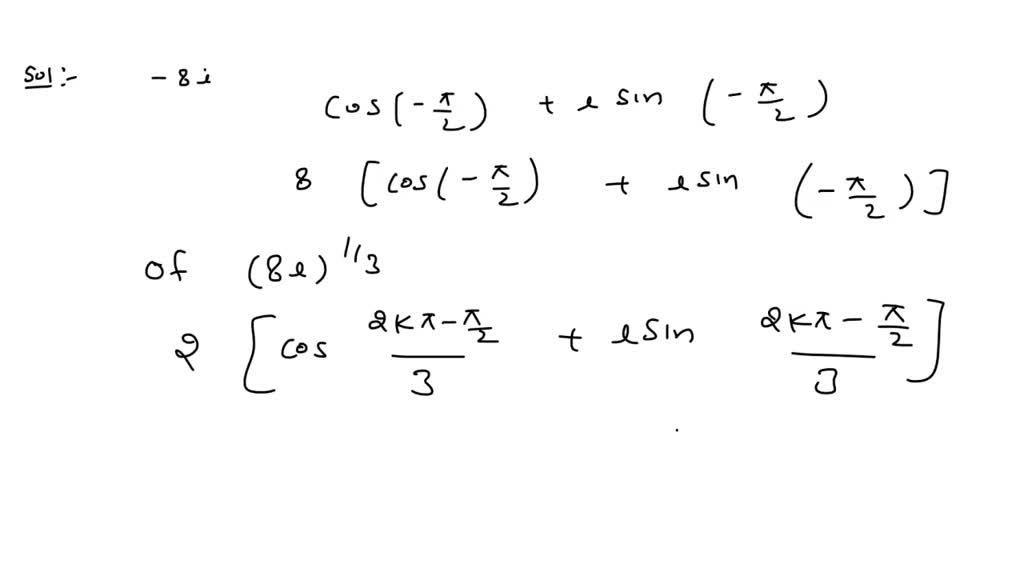 Sol:- -8i
cos(-π/2) + i sin (-π/2)
8 [cos(-π/2) + i sin (-π/2)]
of (8i)^1/3
2 [cos (2kπ-π/2)/3 + i sin (2kπ-π/2)/3]